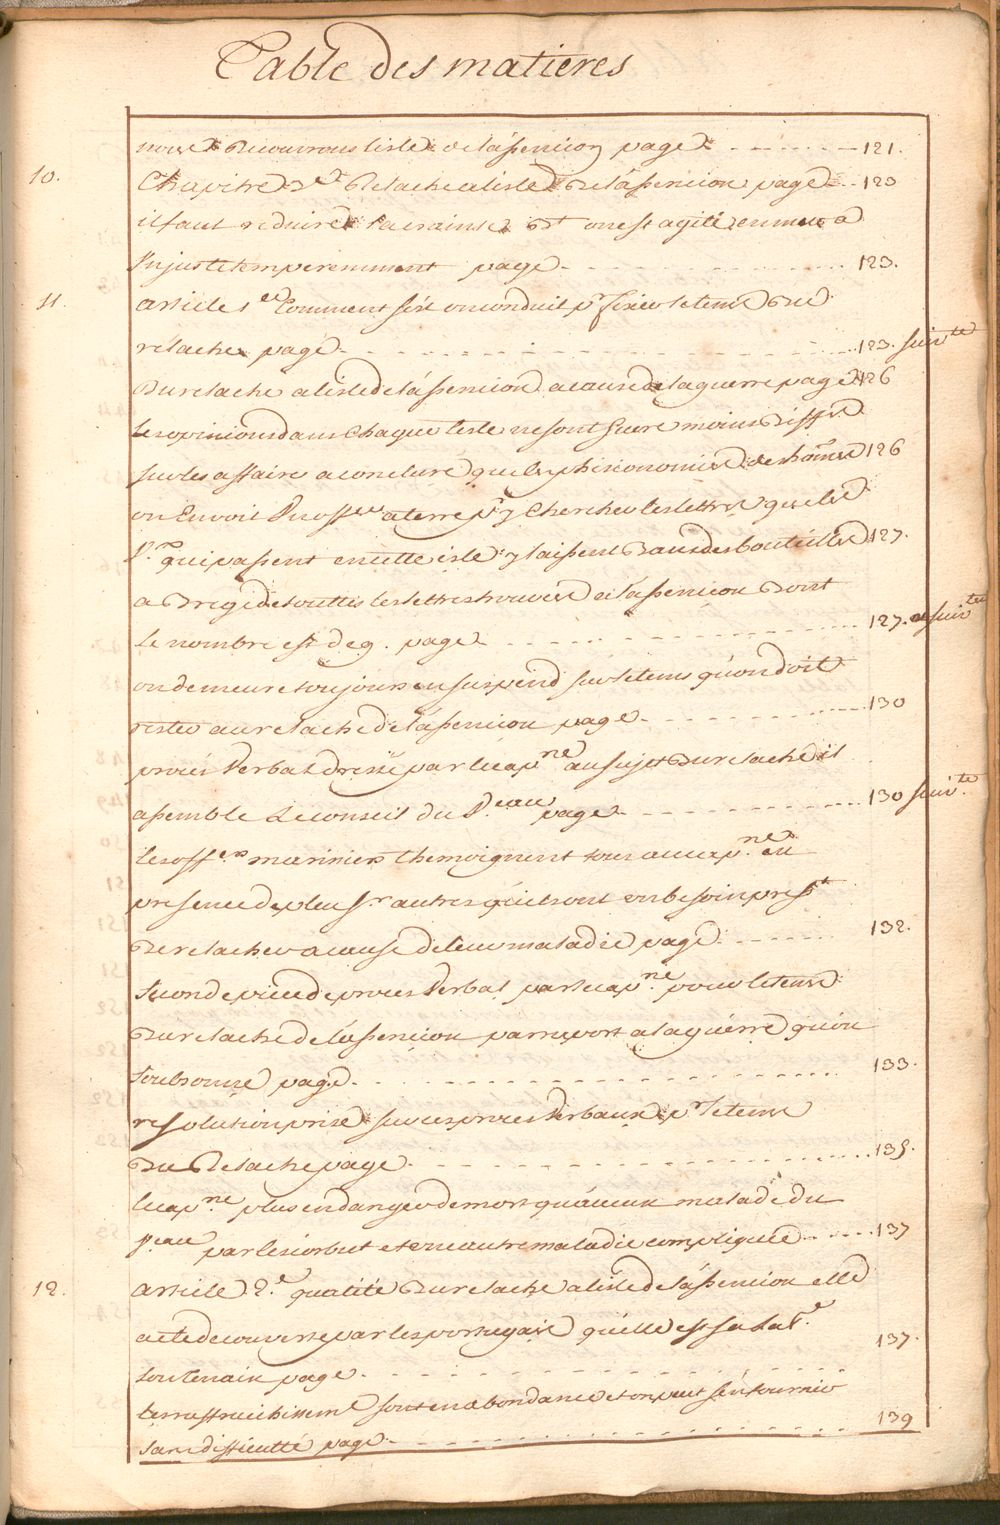 Table des matieres
nous decouvrons l'isle de l'assencion page 121.
10. Chapitre 2.e Relache a l'isle de l'assencion page 123
il faut reduire la crainte et on est agité
Injuste temperemment page 123.
11. article 1.er Comment s'est on conduit pr fixer le tems du
relache page 123. suivte
Du relache a l'isle de l'assencion a cause de la guerre page 126
Les opinions dans chaque teste ne sont guere moins differe
sur les affaire a conclure que les phisionomies des homes 126
on Envoit Un offer a terre pr y chercher les lettres que les
qui passent en cette isle y laissent dans des bouteilles 127.
a Bregé de touttes les lettres trouvées a l'assencion dont
le nombre est de 9. page 127. et suivtes
on demeure toujours en suspend sur le tems qu'on doit
rester au relache de l'assencion page 130
procés Verbal dressé par le capne au sujet du relache il
assemble Le conseil du Veau page 130 suivte
les offers mariniers themoignent tous au capne en
presence de plusrs autres qu'ils ont un besoin presst
de relacher a cause de leur maladie page 132.
seconde piece de procés Verbal par le capne pour le tems
du relache de l'assencion par raport a la guerre qu'on
soubsonne page 133.
resolution prise sur ces procés Verbaux pr le tems
du Relache page 135.
le capne plus en danger de mort qu'aucun malade du
Veau par le scorbut et une autre maladie compliquée 137
12. article 2.e qualité du relache a l'isle de l'assencion elle
a eté decouverte par les portugais qu'elle est sa
page 137.
les raffraichissemt sont en abondance et on peut s'en fournir
sans difficulté page 139